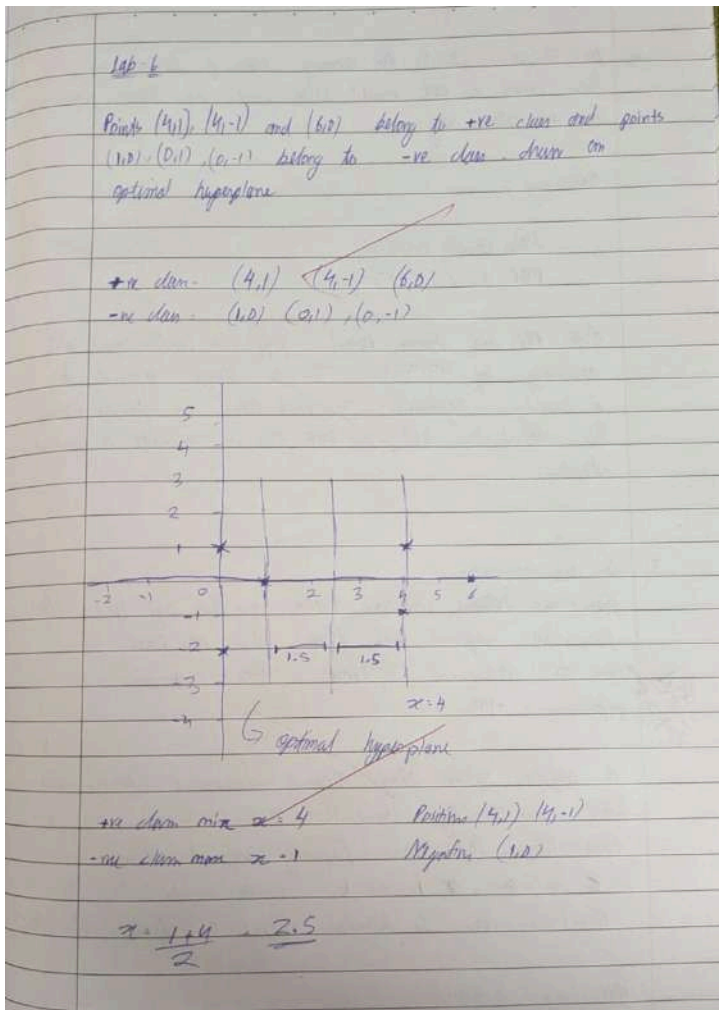 Lab-6
Points (4,1), (4,-1) and (6,0) belong to +ve class and points
(1,0), (0,1), (0,-1) belong to -ve class. draw an
optimal hyperplane
+ve class- (4,1) (4,-1) (6,0)
-ve class- (1,0) (0,1), (0,-1)
5
4
3
2
1
-2 -1 0 2 3 4 5 6
-1
-2
1.5 1.5
-3
x=4
-4
optimal hyperplane
+ve class min x = 4 Positive (4,1) (4,-1)
-ve class max x = 1 Negative (1,0)
x = 1+4 = 2.5
2